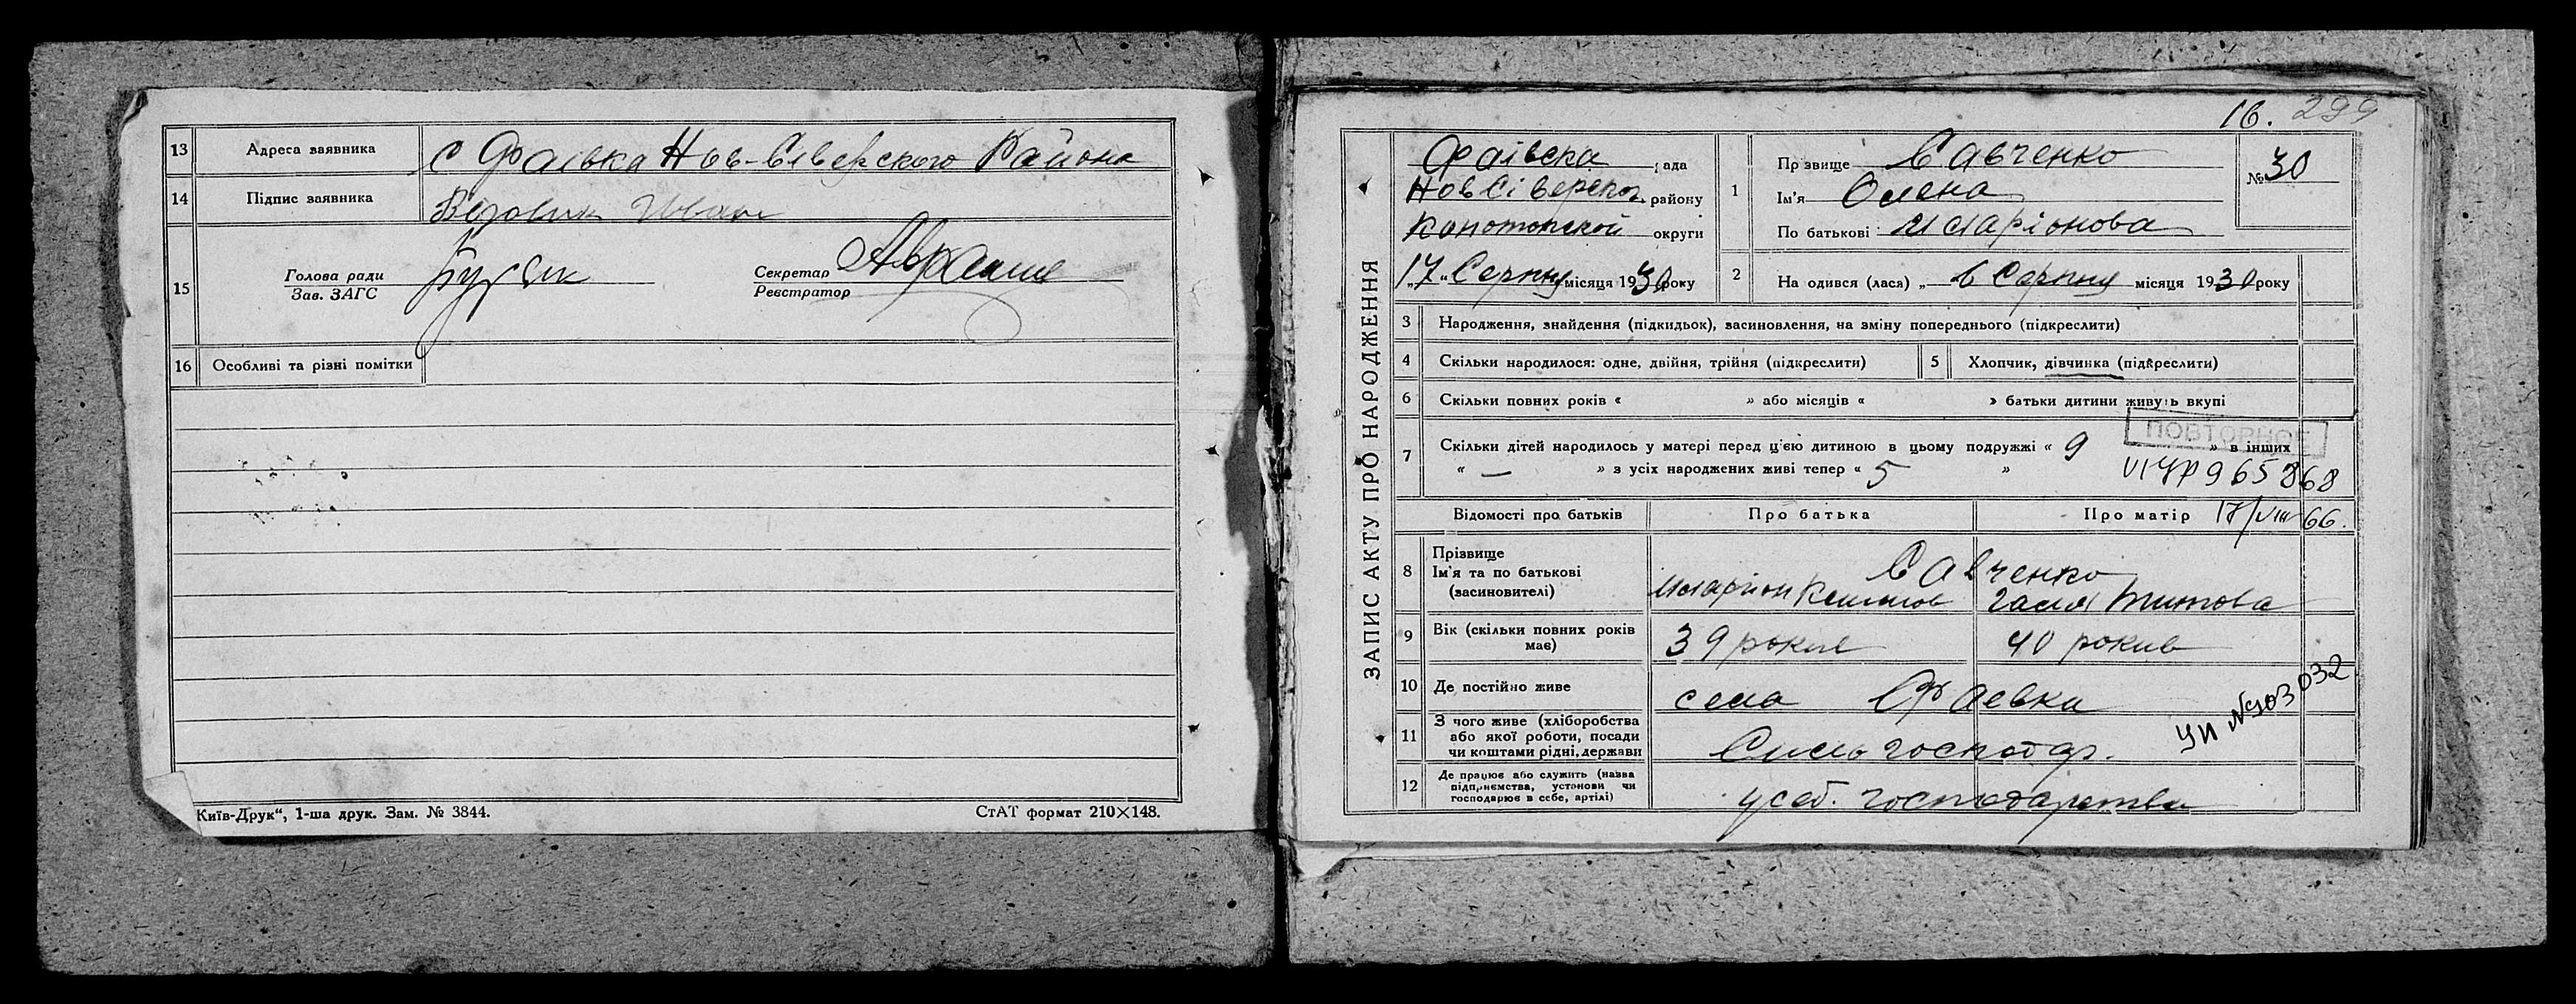 13 Адреса заявника с Фаівка Нов-Сіверского Района
14 Підпис заявника Иван
15 Голова ради
Зав. ЗАГС
Секретар
Реєстратор
16 Особливі та різні помітки
Київ-Друк“, 1-ша друк. Зам. № 3844.
СтАТ формат 210×148.
16. 299
ЗАПИС АКТУ ПРО НАРОДЖЕННЯ
Фаівска рада
НовСіверског. району
Конотопской округи
„17“ Серпня місяця 1930 року
1 Прізвище Савченко
Ім'я Олена
По батькові Иларіонова
№ 30
2 На одився (лася) „ 6 Серпня місяця 1930 року
3 Народження, знайдення (підкидьок), засиновлення, на зміну попереднього (підкреслити)
4 Скільки народилося: одне, двійня, трійня (підкреслити)
5 Хлопчик, дівчинка (підкреслити)
6 Скільки повних років « » або місяців « » батьки дитини живуть вкупі
ПОВТОРНОЕ
7 Скільки дітей народилось у матері перед ц'єю дитиною в цьому подружжі « 9 » в інших
« — » з усіх народжених живі тепер « 5 »
965868
17/VIII 66.
Відомості про батьків Про батька Про матір
8 Прізвище
Ім'я та по батькові
(засиновителі)
Савченко
Иларіон
Галя Титова
9 Вік (скільки повних років має) 39 рокив 40 рокив
10 Де постійно живе село Фаевка
УП №903032
11 З чого живе (хліборобства
або якої роботи, посади
чи коштами рідні, держави
Сильгосподар.
12 Де працює або служить (назва
підприємства, установи чи
господарює в себе, артілі)
у соб. господарстви